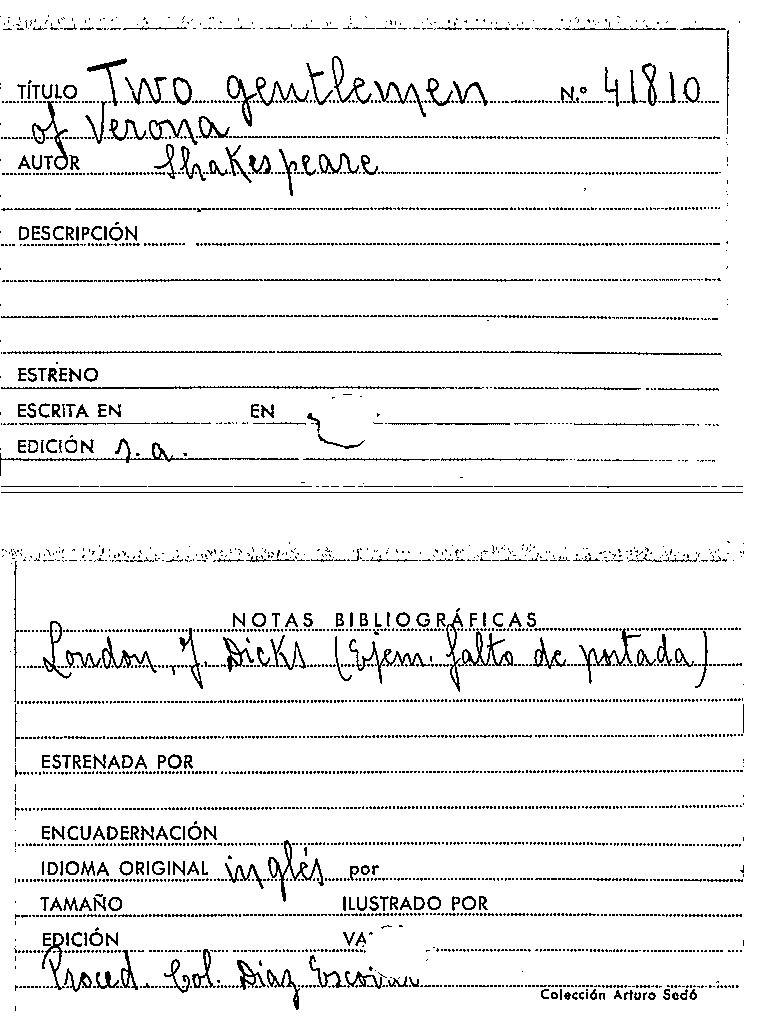 TÍTULO Two gentlemen N.º 41810
of Verona
AUTOR Shakespeare
DESCRIPCIÓN
ESTRENO
ESCRITA EN EN
EDICIÓN s. a.
NOTAS BIBLIOGRÁFICAS
London, J. Dicks (Ejem. falto de portada)
ESTRENADA POR
ENCUADERNACIÓN
IDIOMA ORIGINAL inglés por
TAMAÑO ILUSTRADO POR
EDICIÓN
Proced. Col. Díaz Escovar
Colección Arturo Sedó